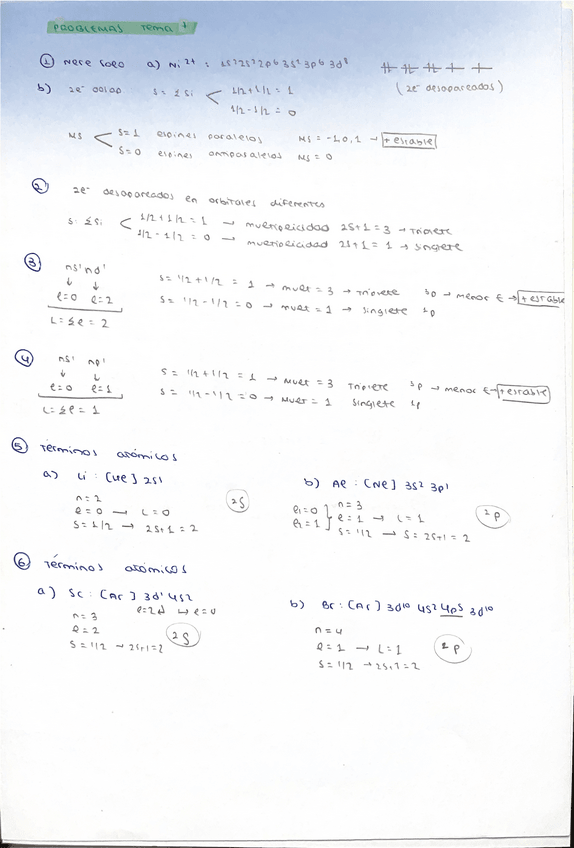 PROBLEMAS Tema 7
① Mecesoeo a) Ni²⁺ : 1s² 2s² 2p⁶ 3s² 3p⁶ 3d⁸
(2e⁻ desapareados)
b) 2e⁻ S = ΣSi 1/2 + 1/2 = 1
1/2 - 1/2 = 0
MS S=1 espines paralelos MS = -1,0,1 → + estable
S=0 espines antiparalelos MS = 0
② 2e⁻ desapareados en orbitales diferentes
S: ΣSi 1/2 + 1/2 = 1 → multiplicidad 2S+1 = 3 → Triplete
1/2 - 1/2 = 0 → multiplicidad 2S+1 = 1 → Singlete
③ ns¹ nd¹
↓ ↓
l=0 l=2
L = Σl = 2
S = 1/2 + 1/2 = 1 → mult = 3 → Triplete ³D → menor E → + estable
S = 1/2 - 1/2 = 0 → mult = 1 → Singlete ¹D
④ ns¹ np¹
↓ ↓
l=0 l=1
L = Σl = 1
S = 1/2 + 1/2 = 1 → Mult = 3 Triplete ³P → menor E → + estable
S = 1/2 - 1/2 = 0 → Mult = 1 Singlete ¹P
⑤ Términos atómicos
a) Li : [He] 2s¹
n = 2
l = 0 → L = 0
S = 1/2 → 2S+1 = 2
²S
b) Al : [Ne] 3s² 3p¹
n = 3
l₁=0
l₂=1 l = 1 → L = 1
S = 1/2 → S = 2S+1 = 2
²P
⑥ Términos atómicos
a) Sc : [Ar] 3d¹ 4s²
n = 3
l = 2
S = 1/2 → 2S+1 = 2
²S
b) Br : [Ar] 3d¹⁰ 4s² 4p⁵ 3d¹⁰
n = 4
l = 1 → L = 1
S = 1/2 → 2S+1 = 2
²P